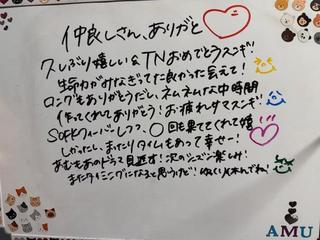 仲良しさん、ありがと
久しぶり嬉しい&TNおめでとうスンギ!
生命力がみなぎってた良かった言えて!
ロングもありがとうだし、ネムネムな中時間
作ってくれてありがとう!お疲れサマスンギ!
しつつ、〇回も果ててくれて嬉
しかったし、まったりタイムもあって幸せー!
あむもあのドラマ見返す!次のシーズン楽しみ!
またタイミングになると思うけど!ゆっくり休んでね!
AMU